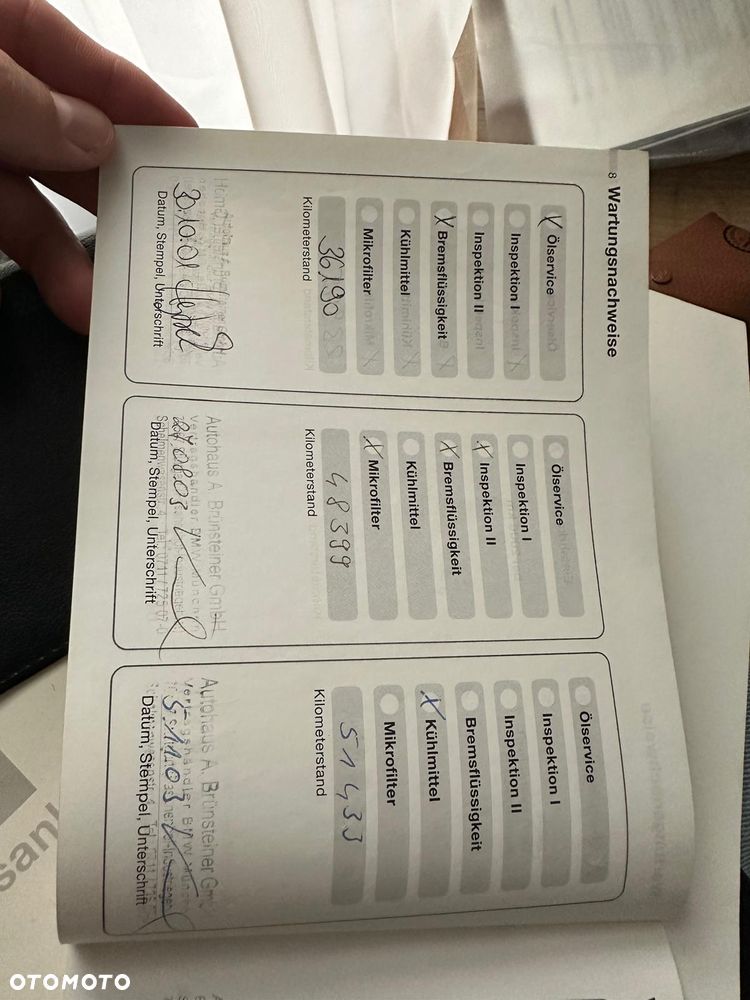 8 Wartungsnachweise
Ölservice
Inspektion I
Inspektion II
Bremsflüssigkeit
Kühlmittel
Mikrofilter
36190
Kilometerstand
30.10.01
Datum, Stempel, Unterschrift
Ölservice
Inspektion I
Inspektion II
Bremsflüssigkeit
Kühlmittel
Mikrofilter
48399
Kilometerstand
Autohaus A. Brünsteiner GmbH
27.08.03
Datum, Stempel, Unterschrift
Ölservice
Inspektion I
Inspektion II
Bremsflüssigkeit
Kühlmittel
Mikrofilter
51433
Kilometerstand
Autohaus A. Brünsteiner GmbH
Vertragshändler BMW
5.11.03
Datum, Stempel, Unterschrift
OTOMOTO